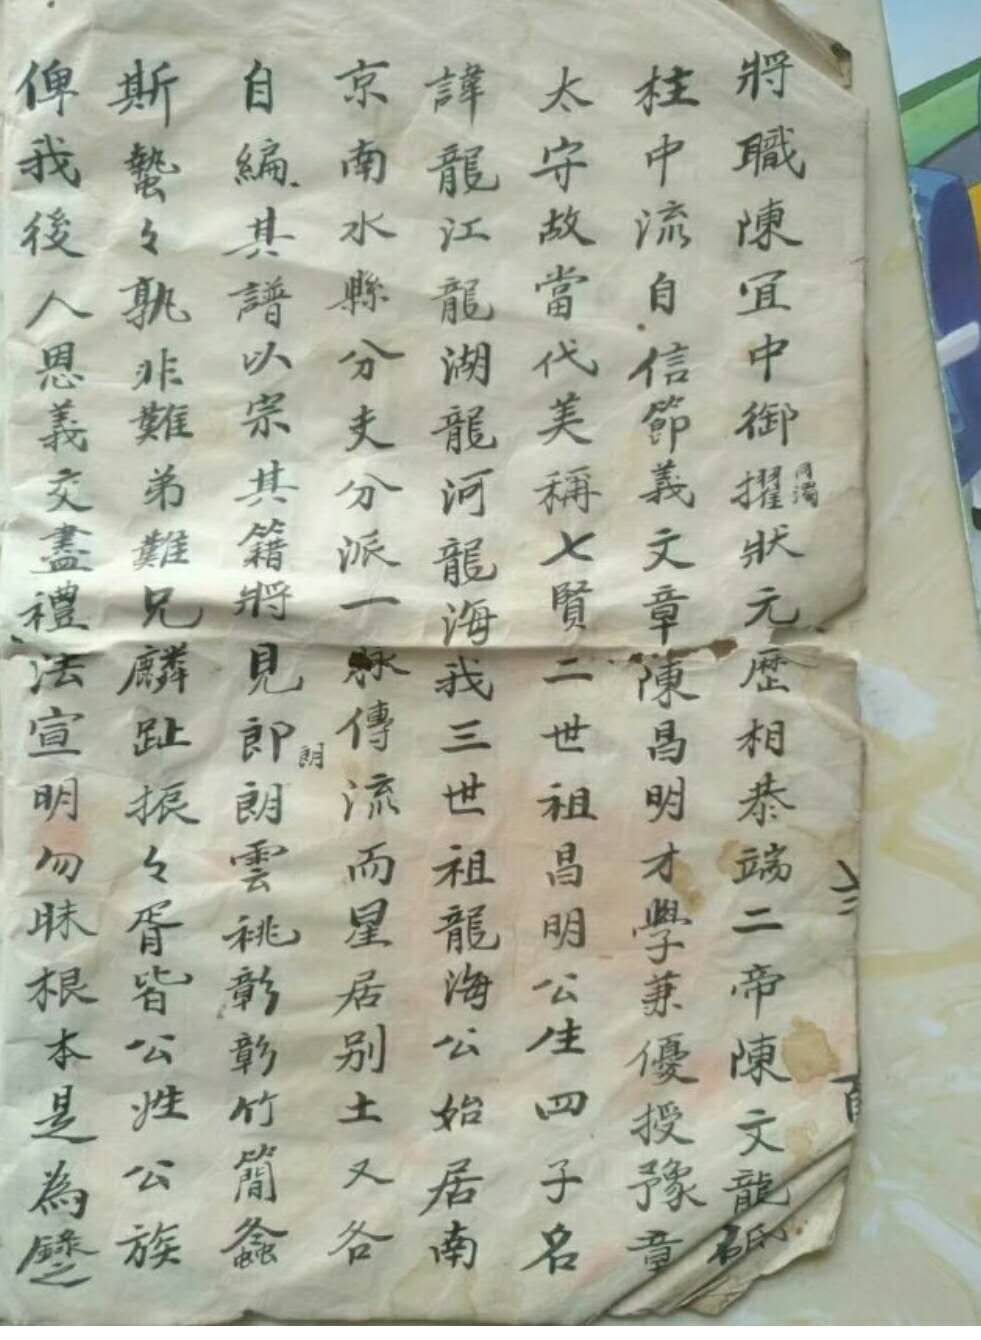 將職陳宜中御擢狀元歷相恭端二帝陳文龍砥
柱中流自信節義文章陳昌明才學兼優授豫章
太守故當代美稱七賢二世祖昌明公生四子名
諱龍江龍湖龍河龍海我三世祖龍海公始居南
京南水縣分支分派一脉傳流而星居别土又各
自編其譜以宗其籍將見郎朗雲祧彰彰竹簡螽
朗
斯蟄々孰非難弟難兄麟趾振々胥皆公姓公族
俾我後人恩義交盡禮法宣明勿昧根本是為錄之